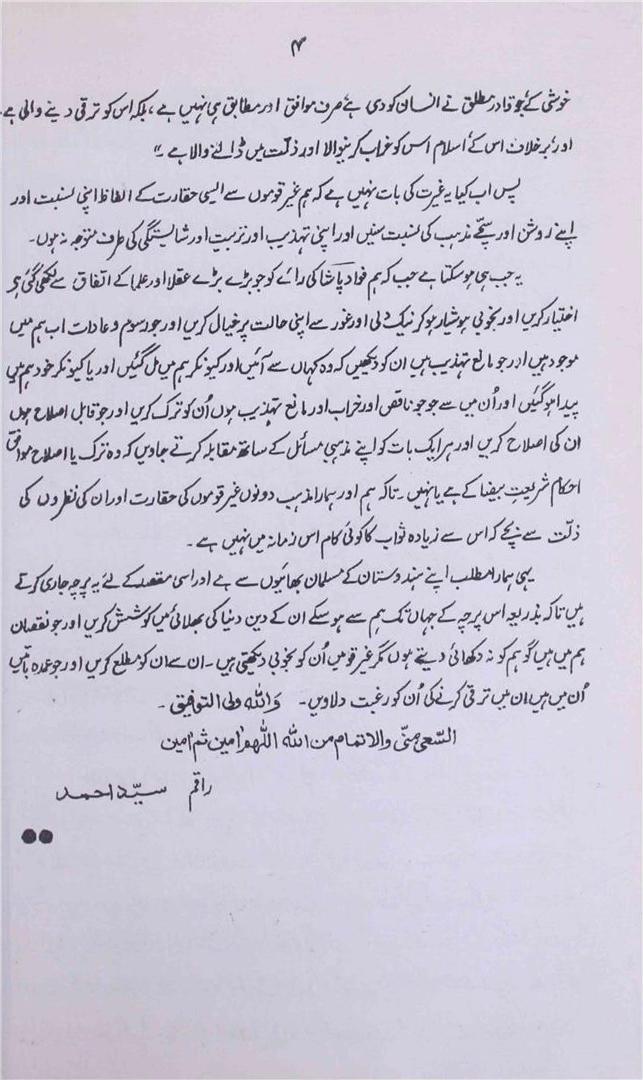 ۴
خوشی کے جو قادر مطلق نے انسان کو دی ہے صرف موافق اور مطابق ہی نہیں ہے، بلکہ اس کو ترقی دینے والی ہے۔
اور برخلاف اس کے اسلام اس کو خراب کرنیوالا اور ذلت میں ڈالنے والا ہے۔"
پس اب کیا یہ غیرت کی بات نہیں ہے کہ ہم غیر قوموں سے ایسی حقارت کے الفاظ اپنی نسبت اور
اپنے روشن اور سچے مذہب کی نسبت سنیں اور اپنی تہذیب اور تربیت اور شائستگی کی طرف متوجہ نہ ہوں۔
یہ جب ہی ہو سکتا ہے جب کہ ہم فواد پاشا کی رائے کو جو بڑے بڑے عقلا اور علما کے اتفاق سے لکھی گئی ہے
اختیار کریں اور بخوبی ہوشیار ہو کر نیک دلی اور غور سے اپنی حالت پر خیال کریں اور جو رسوم و عادات اب ہم میں
موجود ہیں اور جو مانع تہذیب ہیں ان کو دیکھیں کہ وہ کہاں سے آئیں اور کیونکر ہم میں مل گئیں اور یا کیونکر خود ہم میں
پیدا ہو گئیں اور اُن میں سے جو جو ناقص اور خراب اور مانع تہذیب ہوں اُن کو ترک کریں اور جو قابل اصلاح ہوں
ان کی اصلاح کریں اور ہر ایک بات کو اپنے مذہبی مسائل کے ساتھ مقابلہ کرتے جاویں کہ وہ ترک یا اصلاح موافق
احکام شریعتِ بیضا کے ہے یا نہیں۔ تاکہ ہم اور ہمارا مذہب دونوں غیر قوموں کی حقارت اور ان کی نظروں کی
ذلت سے بچے کہ اس سے زیادہ ثواب کا کوئی کام اس زمانہ میں نہیں ہے۔
یہی ہمارا مطلب اپنے ہندوستان کے مسلمان بھائیوں سے ہے اور اسی مقصد کے لئے یہ پرچہ جاری کرتے
ہیں تاکہ بذریعہ اس پرچہ کے جہاں تک ہم سے ہو سکے ان کے دین دنیا کی بھلائی میں کوشش کریں اور جو نقصان
ہم میں ہیں گو ہم کو نہ دکھائی دیتے ہوں مگر غیر قومیں اُن کو بخوبی دیکھتی ہیں۔ ان سے ان کو مطلع کریں اور جو عمدہ باتیں
اُن میں ہیں ان میں ترقی کرنے کی اُن کو رغبت دلاویں۔ واللّٰه ولی التوفیق۔
السّعی منّی والاتمام من اللّٰه اللّٰهم اٰمین ثم اٰمین
راقم سیّد احمد